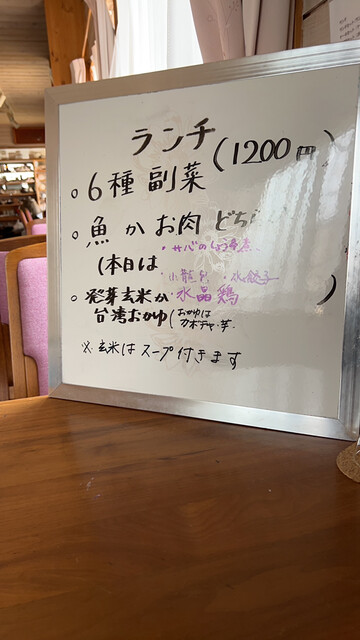 ランチ(1200円)
○6種 副菜
○魚 か お肉 どち
・サバのしょう油煮
(本日は
・小龍包・水餃子
・水晶鶏 )
○発芽玄米か
台湾おかゆ(おかゆは
カボチャ・芋.
※玄米はスープ付きます